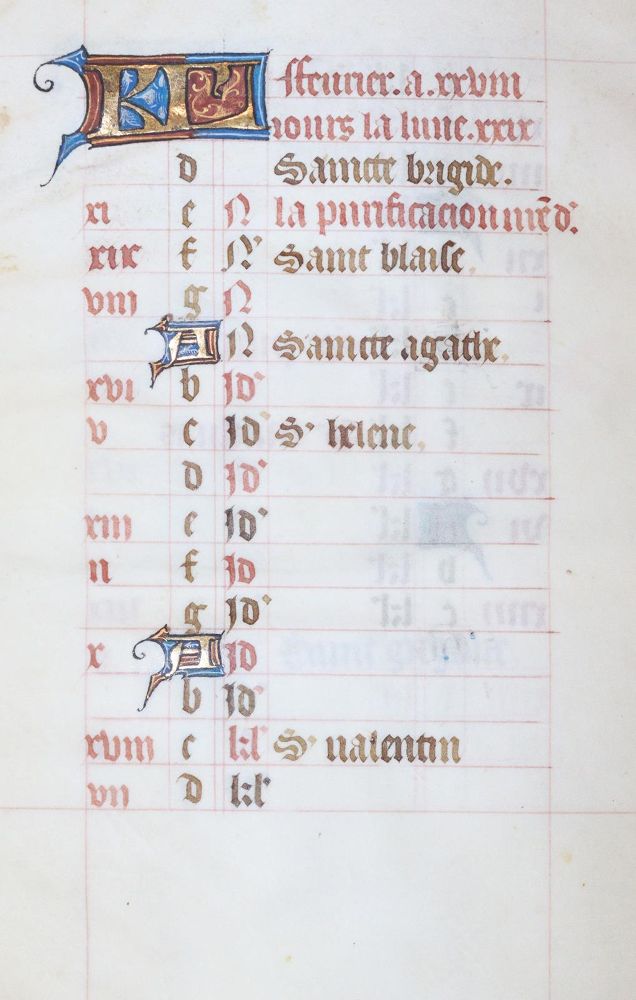 KL ffeurier. a. xxviii
iours la lune. xxix
d Saincte brigide.
xi e N la purificacion nr̄e d'.
xix f N' Saint blaise.
viii g N
A N Saincte agathe.
xvi b Id'
v c Id' S' helene.
d Id'
xiii e Id'
ii f Id
g Id'
x A Id
b Id'
xviii c kl' S' ualentin
vii d kl'